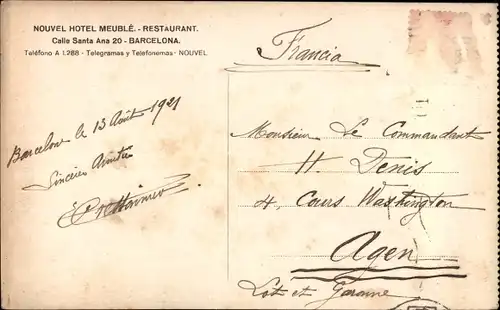 NOUVEL HOTEL MEUBLÉ. - RESTAURANT.
Calle Santa Ana 20 - BARCELONA.
Teléfono A 1.288 - Telegramas y Telefonemas: NOUVEL
Francia
Barcelone le 13 Août 1921
Sincères Amitiés
Monsieur Le Commandant
H. Denis
4, Cours Washington
Agen
Lot et Garonne